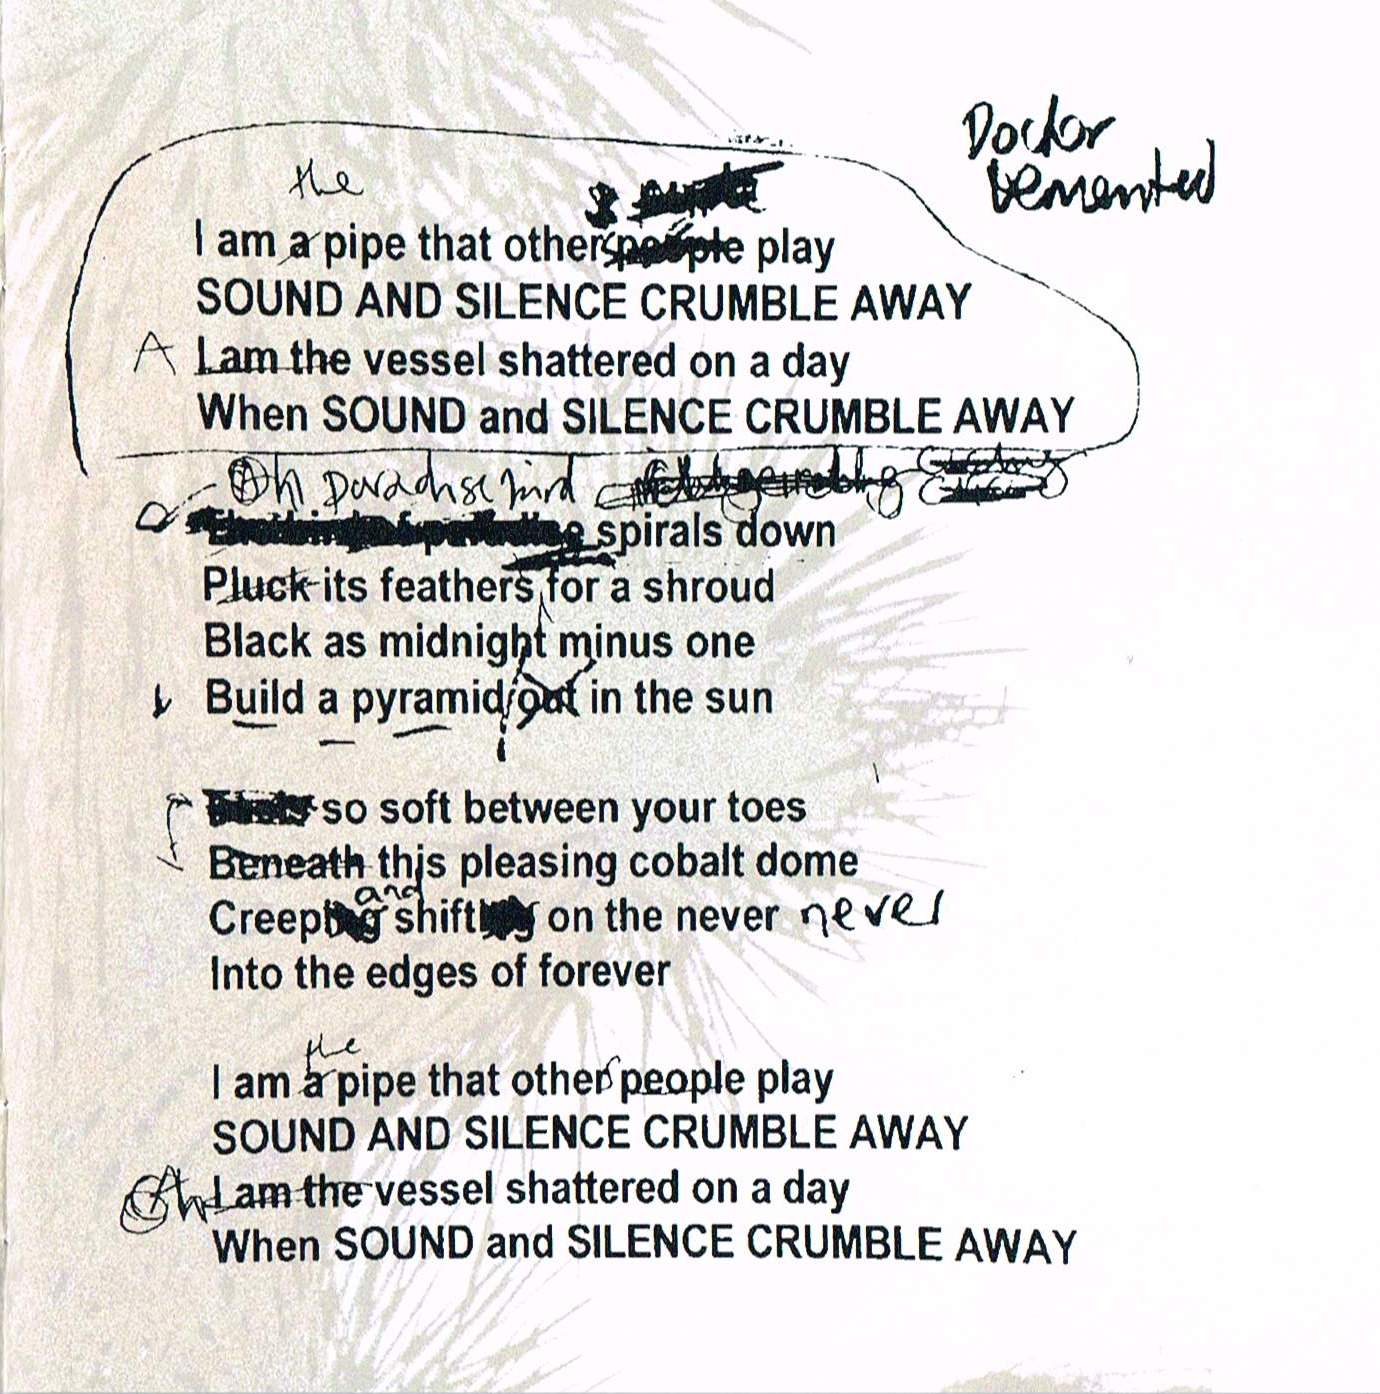 Doctor
Demented
the
I am a pipe that others people play
SOUND AND SILENCE CRUMBLE AWAY
A I am the vessel shattered on a day
When SOUND and SILENCE CRUMBLE AWAY
Oh paradise bird
spirals down
Pluck its feathers for a shroud
Black as midnight minus one
Build a pyramid out in the sun
so soft between your toes
Beneath this pleasing cobalt dome
and
Creeping shifting on the never never
Into the edges of forever
the
I am a pipe that other people play
SOUND AND SILENCE CRUMBLE AWAY
I am the vessel shattered on a day
When SOUND and SILENCE CRUMBLE AWAY